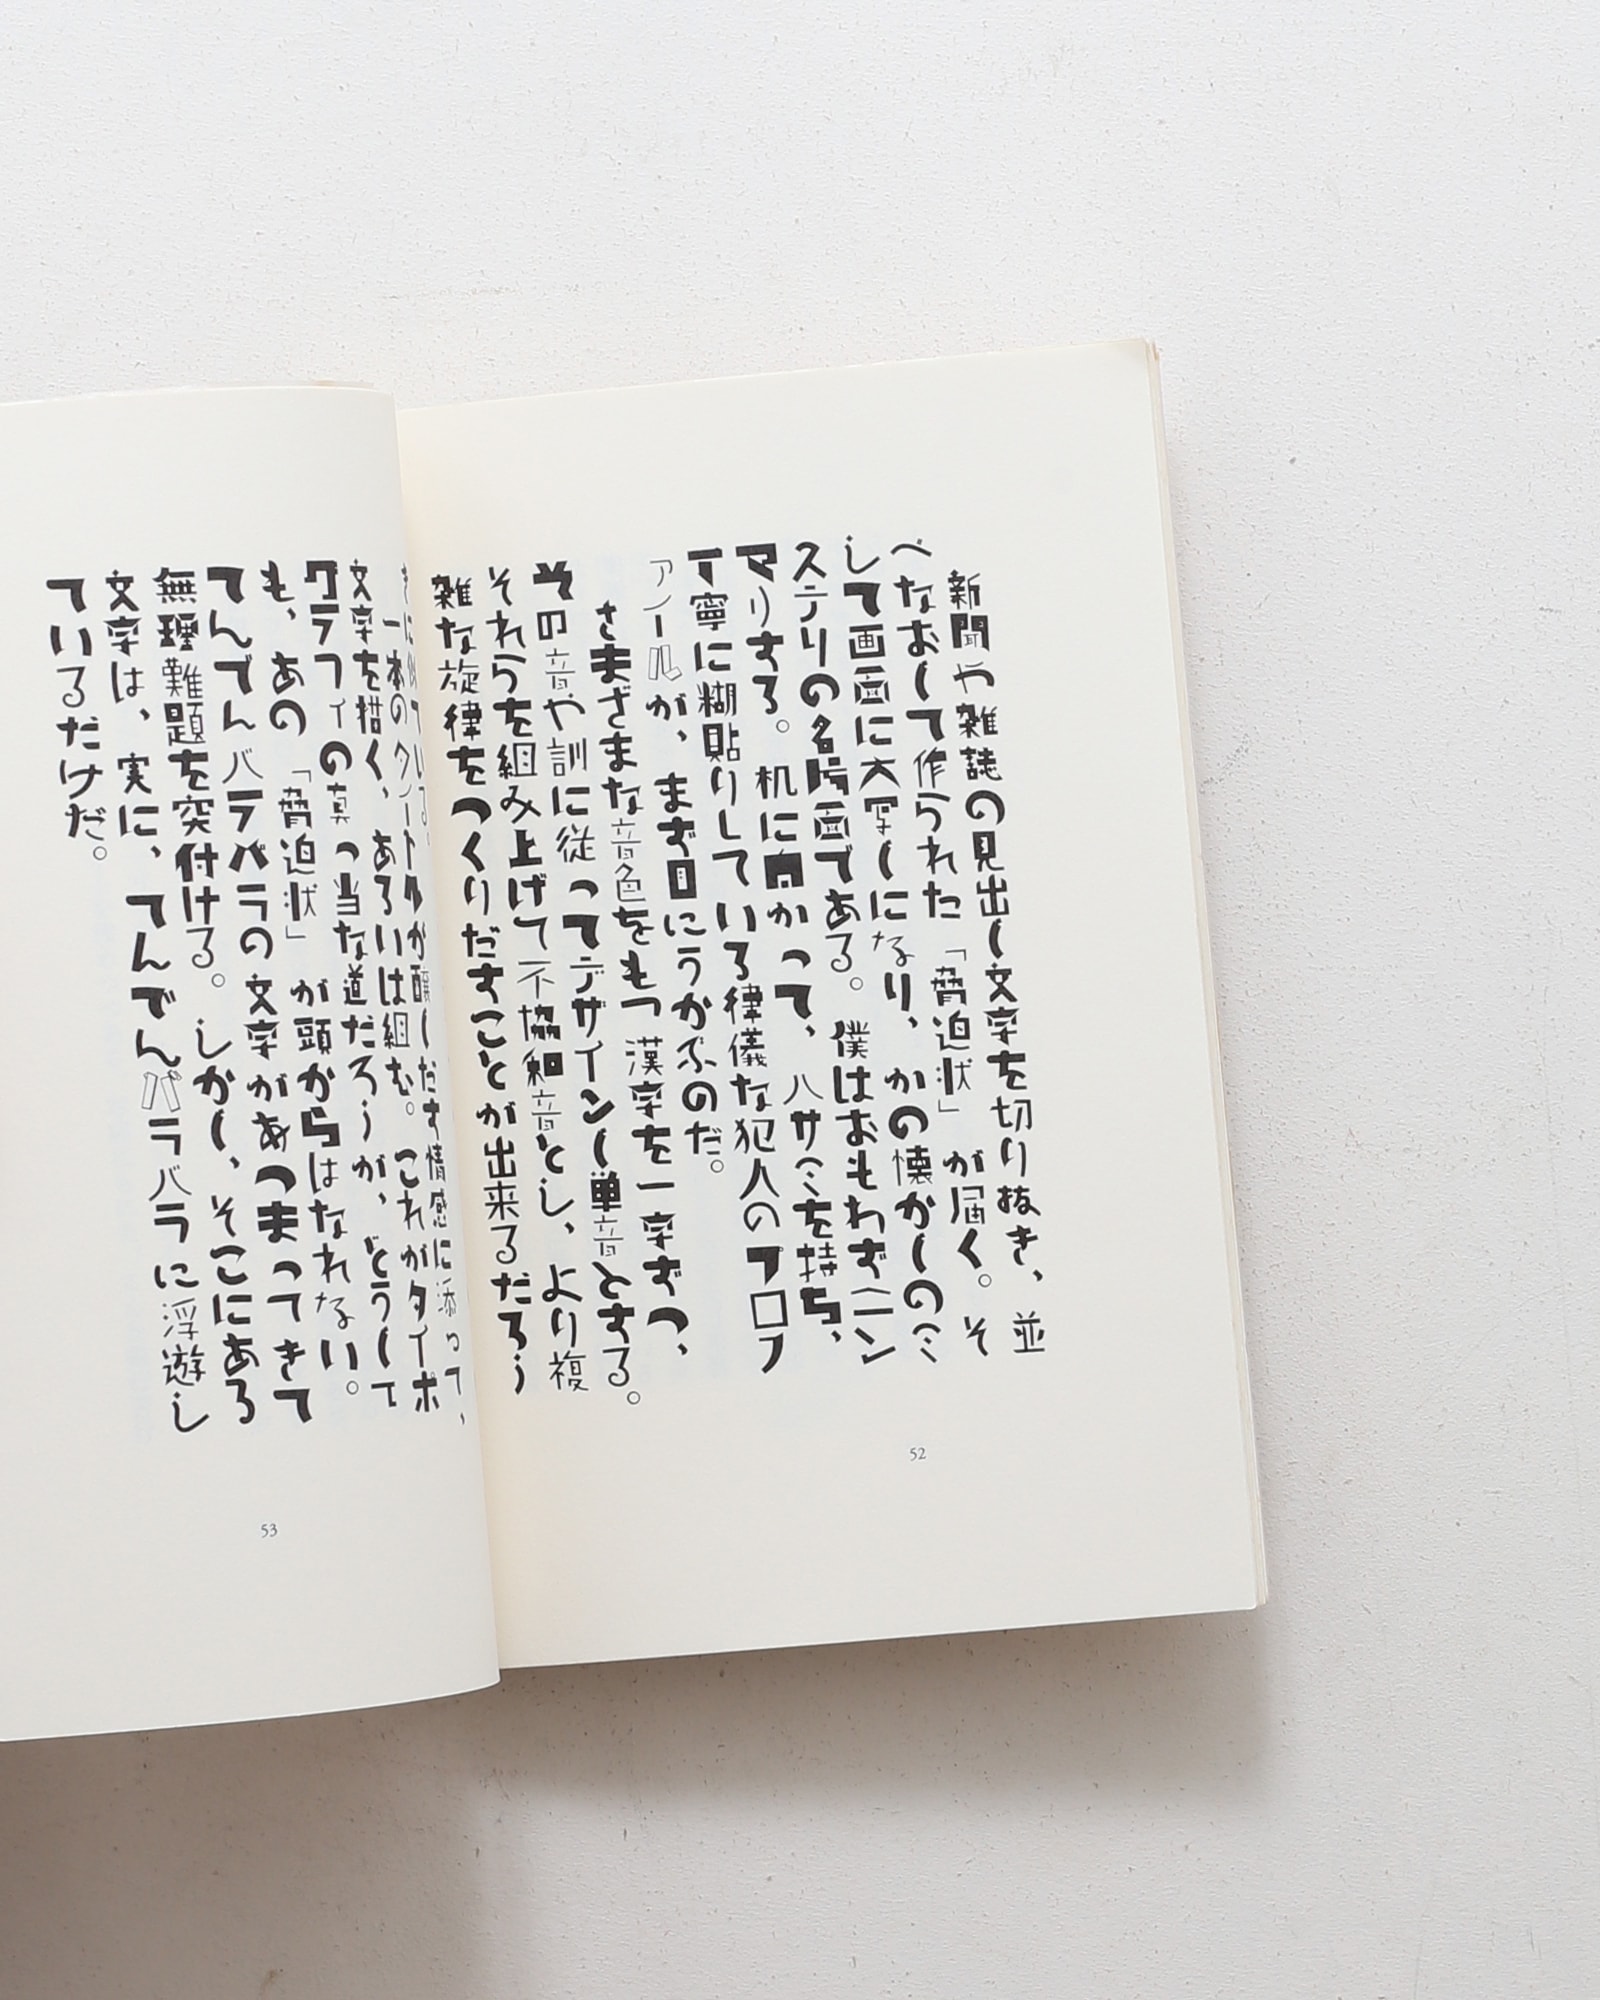 新聞や雑誌の見出し文字を切り抜き、並
べなおして作られた「脅迫状」が届く。そ
して画面に大写しになり、かの懐かしのミ
ステリの名場面である。僕はおもわずニン
マリする。机に向かって、ハサミを持ち、
丁寧に糊貼りしている律儀な犯人のプロフ
ィールが、まず目にうかぶのだ。
さまざまな音色をもつ漢字を一字ずつ、
その音や訓に従ってデザインし単音とする。
それらを組み上げて不協和音とし、より複
雑な旋律をつくりだすことが出来るだろう
52
ている。
一本のタイトルが醸しだす情感に添って、
文字を描く、あるいは組む。これがタイポ
グラフィの真っ当な道だろうが、どうして
も、あの「脅迫状」が頭からはなれない。
てんでんバラバラの文字があつまってきて
無理難題を突付ける。しかし、そこにある
文字は、実に、てんでんバラバラに浮遊し
ているだけだ。
53